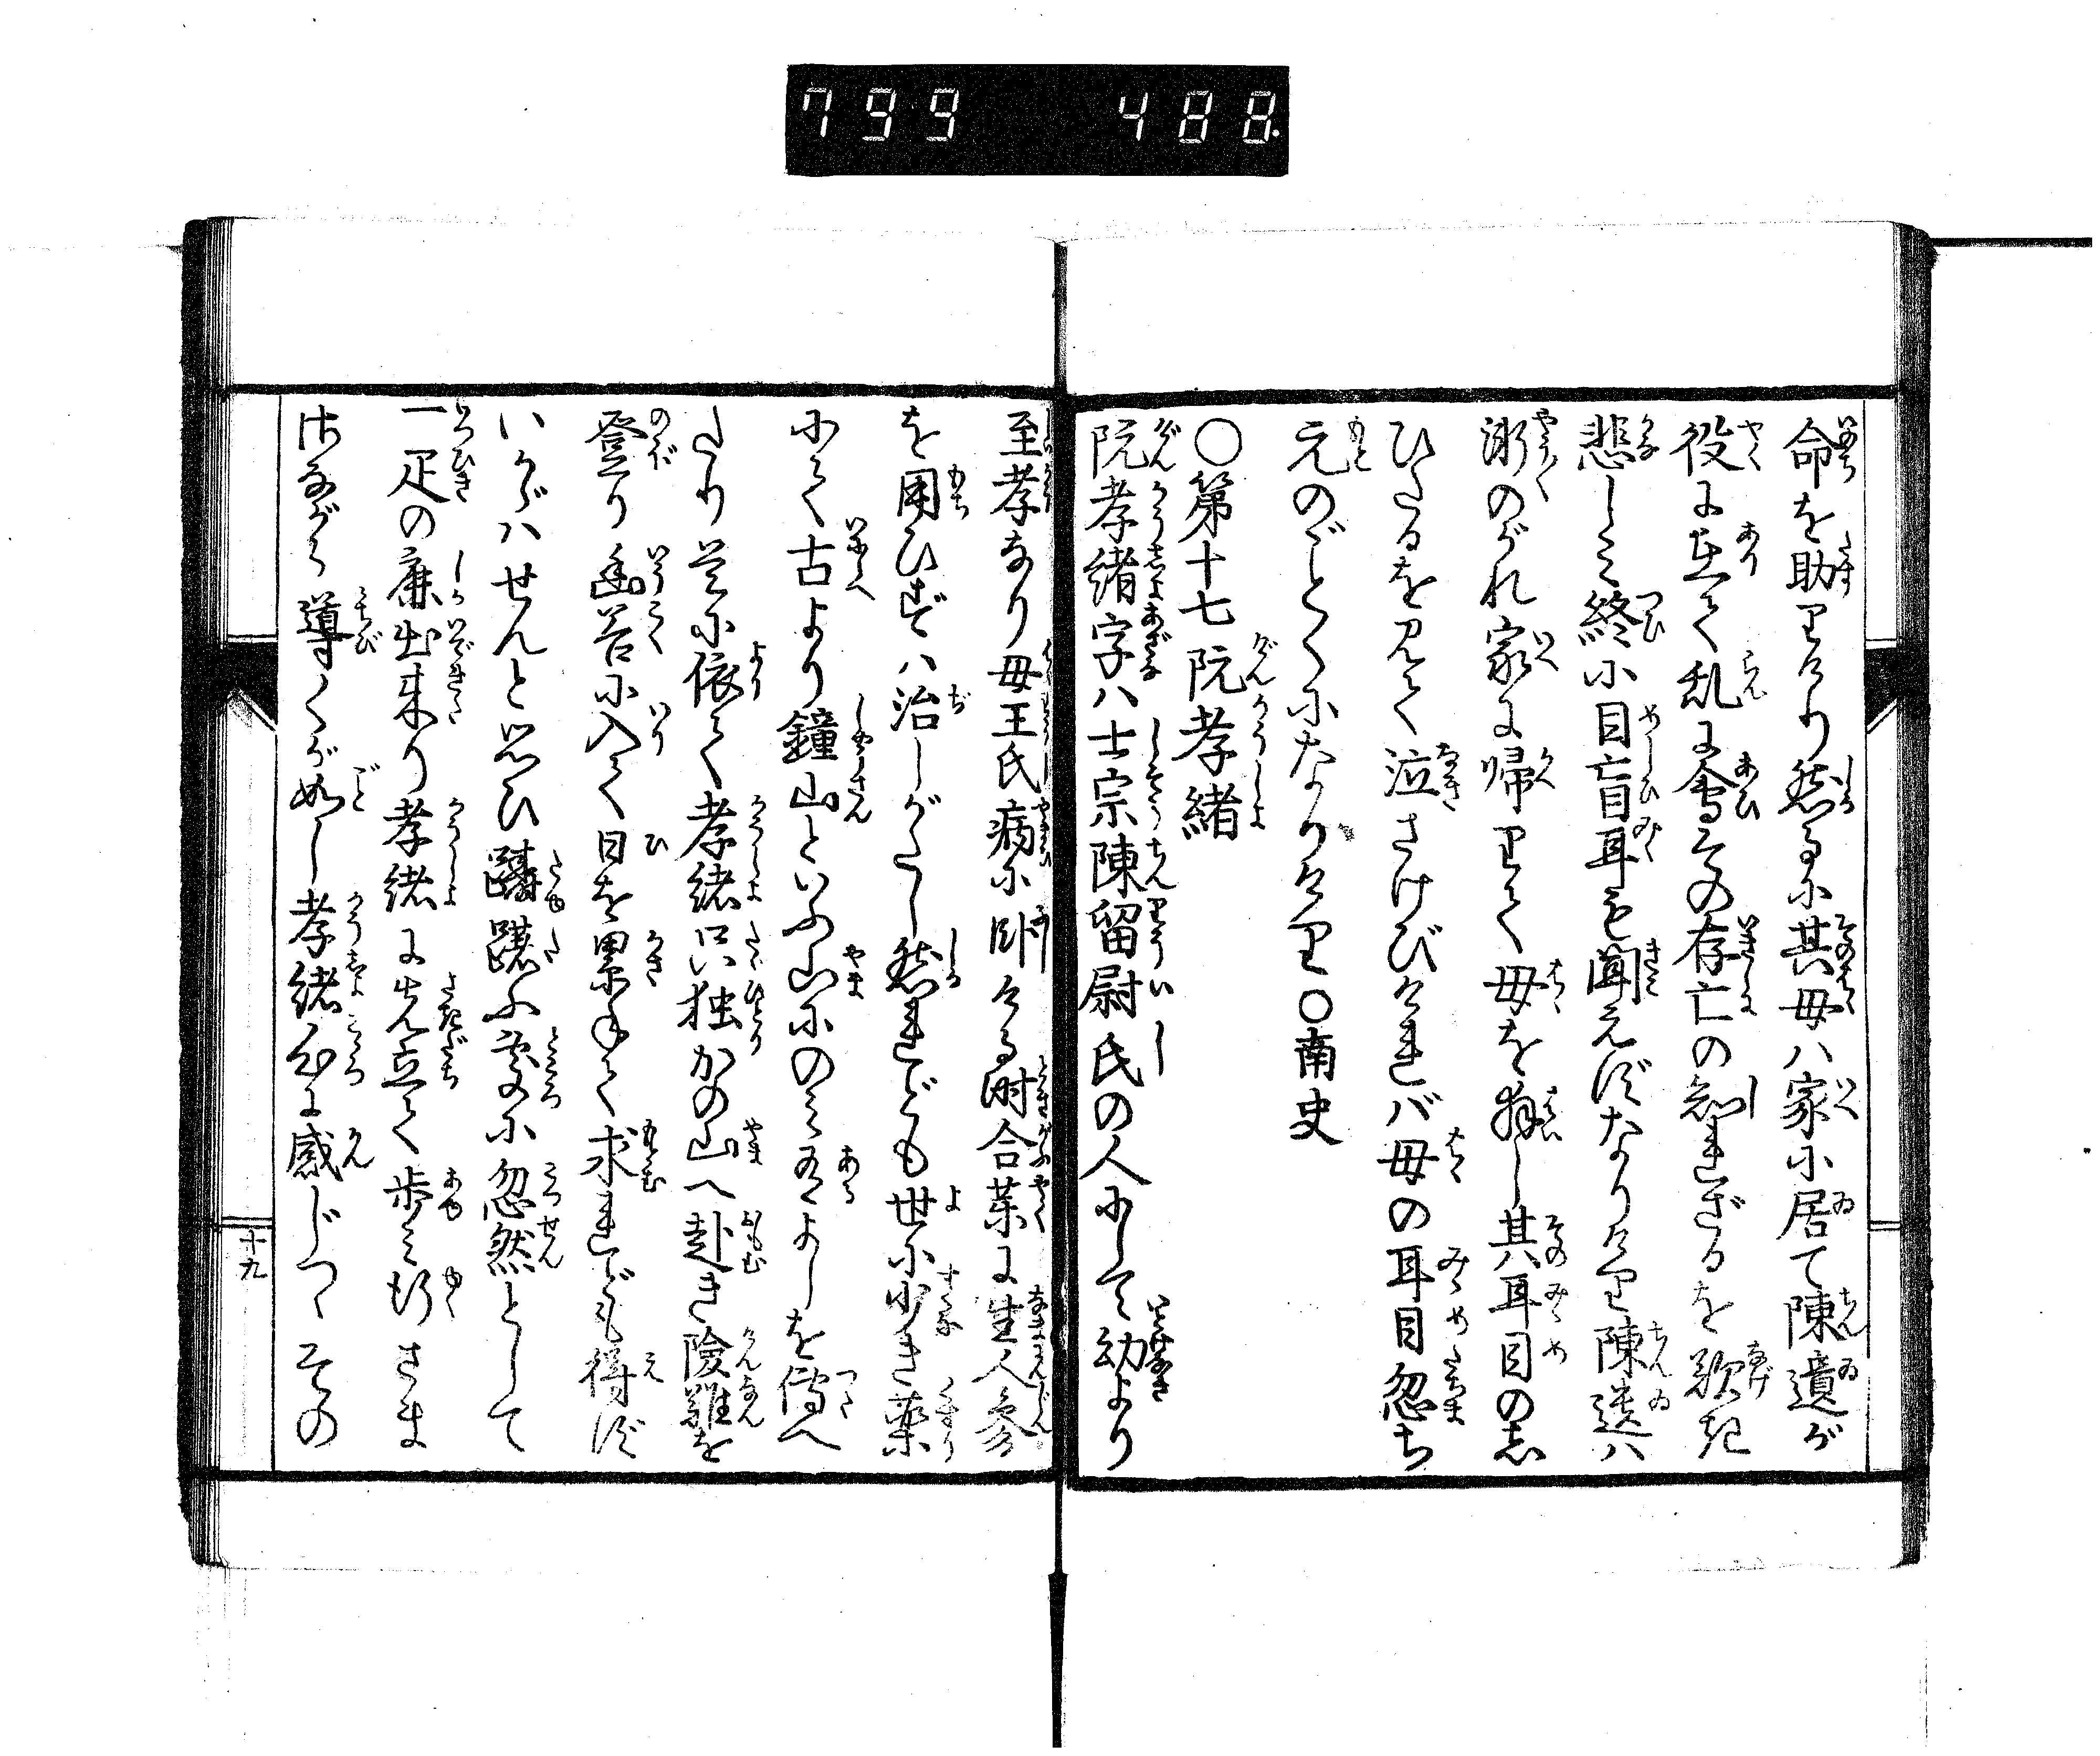 799 488
命を助りけり然るに其母ハ家に居て陳遺が
役に在て乱に会その存亡の知れざるを歎き
悲しみ終に目盲耳も聞えずなりけり陳遺ハ
漸のがれ家に帰りて母を拝し其耳目の志
ひたるを見て泣さけびけれバ母の耳目忽ち
元のごとくになりけり〇南史
〇第十七阮孝緒
阮孝緒字ハ士宗陳留尉氏の人にして幼より
至孝なり母王氏病に臥ける時合薬に生人参
を用ひざれハ治しがたし然れども世に少き薬
にて古より鐘山といふ山にのみ有よしを傳へ
たり是に依て孝緒只独かの山へ赴き険難を
登り幽谷に入て日を累ねて求れども得ず
いかゞハせんと思ひ躊躇ふ處に忽然として
一疋の鹿出来り孝緒に先立て歩み行さま
さながら導くが如し孝緒心に感じつゝその
十九